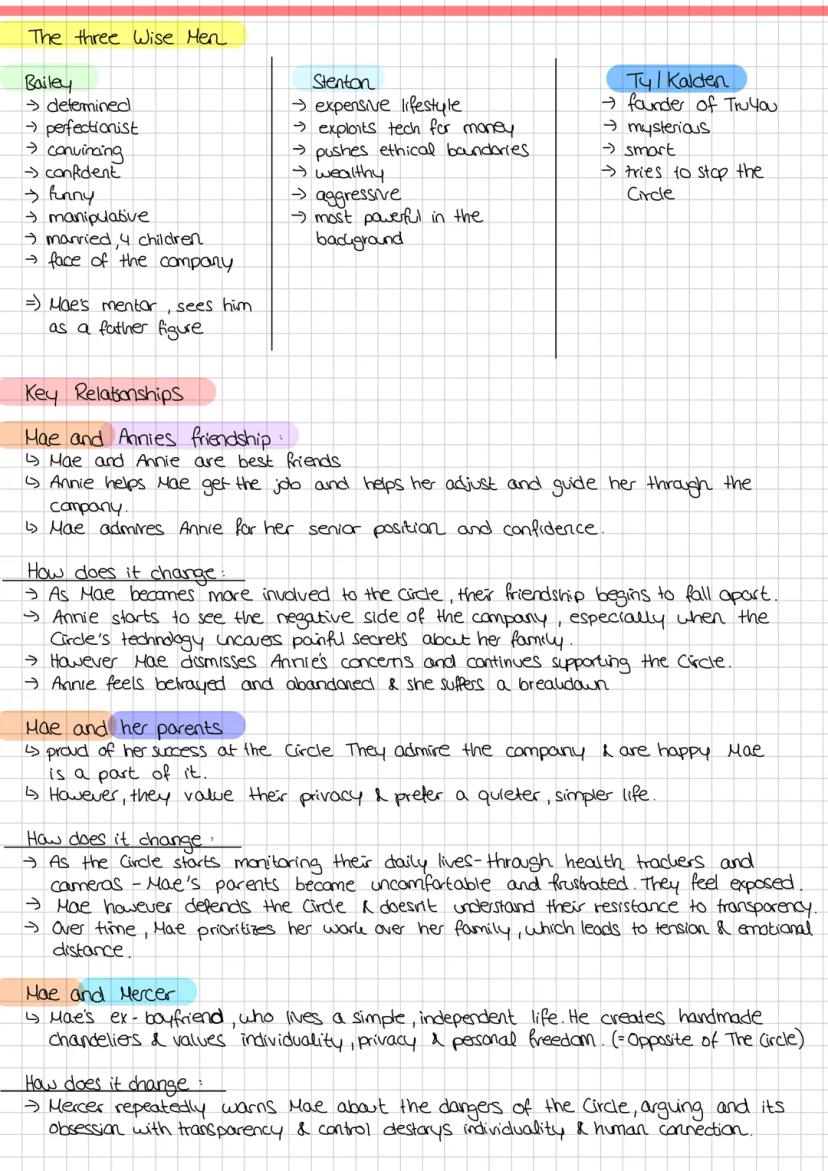 The three Wise Men
Bailey
→ determined
→ perfectionist
→ convincing
→ confident
→ funny
→ manipulative
→ married, 4 children
→ face of the company
⇒ Mae's mentor, sees him
as a father figure
Stenton
→ expensive lifestyle
→ exploits tech for money
→ pushes ethical boundaries
→ wealthy
→ aggressive
→ most powerful in the
background
Ty / Kalden
→ founder of TruYou
→ mysterious
→ smart
→ tries to stop the
Circle
Key Relationships
Mae and Annies friendship:
↳ Mae and Annie are best friends
↳ Annie helps Mae get the job and helps her adjust and guide her through the
company.
↳ Mae admires Annie for her senior position and confidence.
How does it change:
→ As Mae becomes more involved to the Circle, their friendship begins to fall apart.
→ Annie starts to see the negative side of the company, especially when the
Circle's technology uncovers painful secrets about her family.
→ However Mae dismisses Annie's concerns and continues supporting the Circle.
→ Annie feels betrayed and abandoned & she suffers a breakdown
Mae and her parents
↳ proud of her success at the Circle They admire the company & are happy Mae
is a part of it.
↳ However, they value their privacy & prefer a quieter, simpler life.
How does it change:
→ As the Circle starts monitoring their daily lives-through health trackers and
cameras - Mae's parents become uncomfortable and frustrated. They feel exposed.
→ Mae however defends the Circle & doesn't understand their resistance to transparency.
→ Over time, Mae prioritizes her work over her family, which leads to tension & emotional
distance.
Mae and Mercer
↳ Mae's ex-boyfriend, who lives a simple, independent life. He creates handmade
chandeliers & values individuality, privacy & personal freedom. (=Opposite of The Circle)
How does it change:
→ Mercer repeatedly warns Mae about the dangers of the Circle, arguing and its
obsession with transparency & control destorys individuality & human connection.